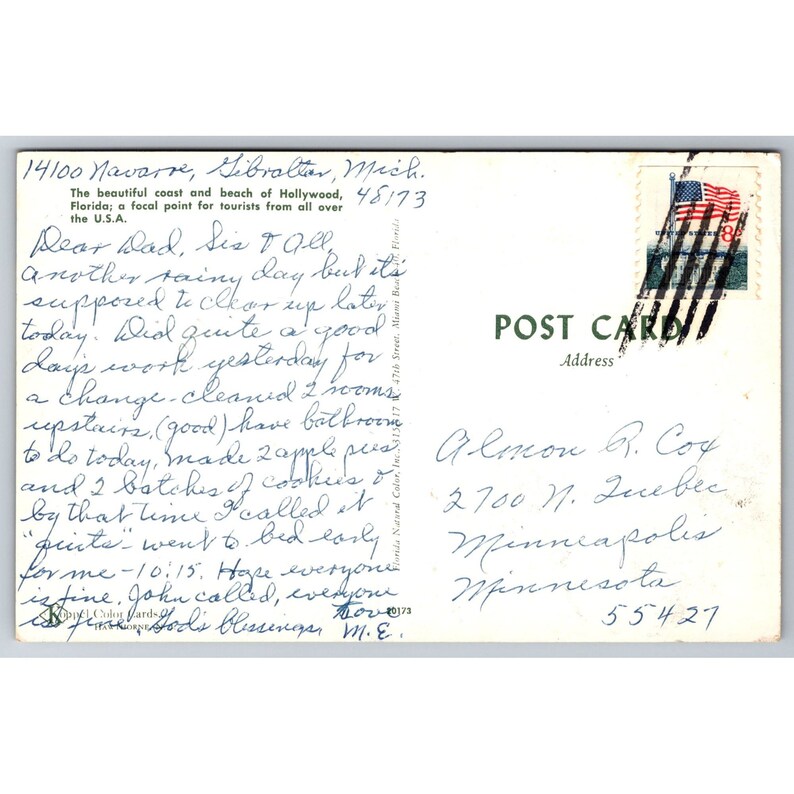 14100 Navarre, Gibraltar, Mich.
48173
The beautiful coast and beach of Hollywood,
Florida; a focal point for tourists from all over
the U.S.A.
Dear Dad, Sis & All,
Another rainy day but it's
supposed to clear up later
today. Did quite a good
days work yesterday for
a change - cleaned 2 rooms
upstairs, (good) have bathroom
to do today, made 2 apple pies
and 2 batches of cookies &
by that time I called it
"quits" - went to bed early
for me - 10:15. Hope everyone
is fine. John called, everyone
is fine. God's blessings,
Love
M.E.
Koppel Color Cards
HAWTHORNE
20173
Florida Natural Color, Inc. 47th Street, Miami Beach, Florida
UNITED STATES 8c
POST CARD
Address
Almon R. Cox
2700 N. Quebec
Minneapolis
Minnesota
55427